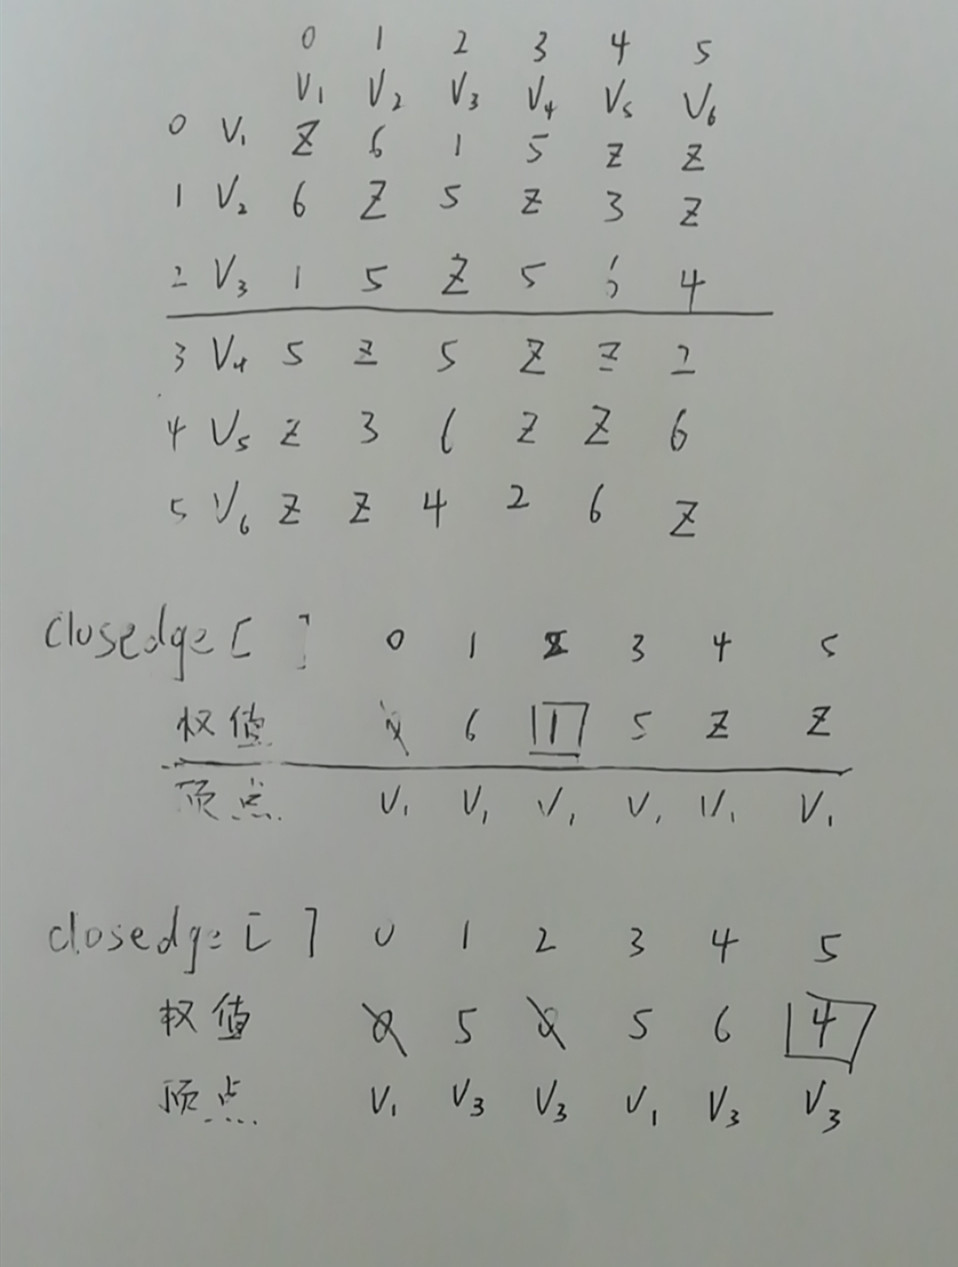 0 1 2 3 4 5
V₁ V₂ V₃ V₄ V₅ V₆
0 V₁ Z 6 1 5 Z Z
1 V₂ 6 Z 5 Z 3 Z
2 V₃ 1 5 Z 5 6 4
3 V₄ 5 Z 5 Z Z 2
4 V₅ Z 3 6 Z Z 6
5 V₆ Z Z 4 2 6 Z
closedge[ ] 0 1 2 3 4 5
权值 0 6 1 5 Z Z
顶点 V₁ V₁ V₁ V₁ V₁ V₁
closedge[ ] 0 1 2 3 4 5
权值 0 5 0 5 6 4
顶点 V₁ V₃ V₃ V₁ V₃ V₃